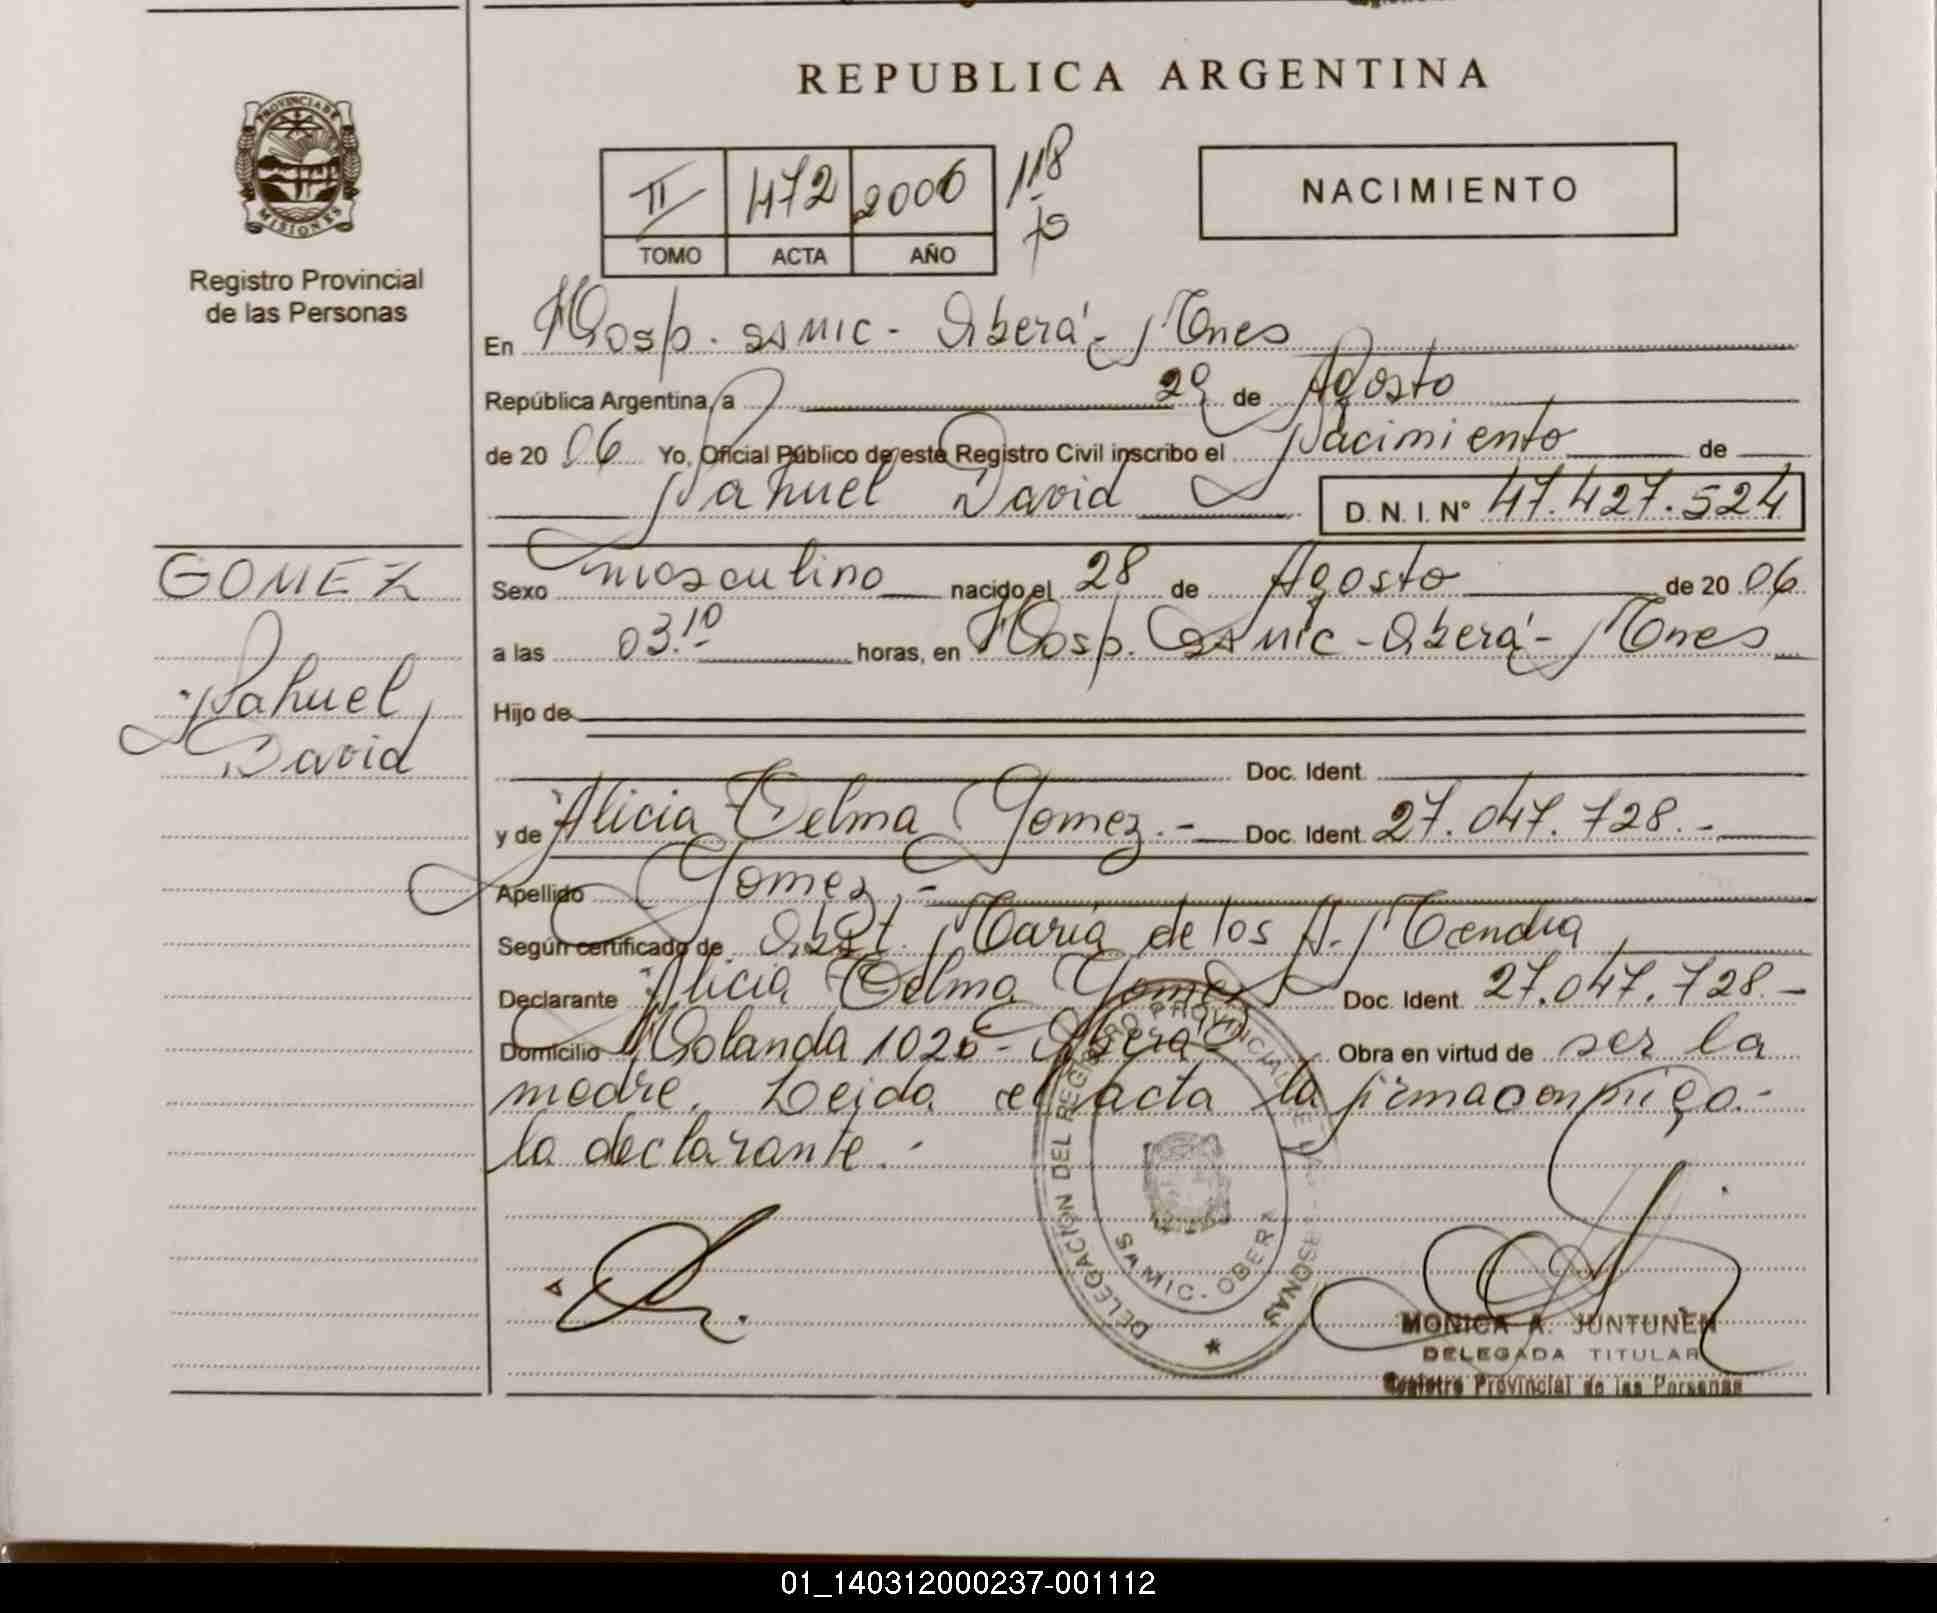 REPUBLICA ARGENTINA
PROVINCIA DE
MISIONES
Registro Provincial
de las Personas
II 472 2006 118
TOMO ACTA AÑO
NACIMIENTO
En Hosp. SAMIC - Oberá - Mnes
República Argentina, a 29 de Agosto
de 20 06 Yo, Oficial Público de este Registro Civil inscribo el Nacimiento de
Nahuel David D.N.I. Nº 47.427.524
GOMEZ
Nahuel
David
Sexo masculino nacido el 28 de Agosto de 20 06
a las 03.10 horas, en Hosp. SAMIC - Oberá - Mnes
Hijo de
Doc. Ident.
y de Alicia Telma Gomez.- Doc. Ident. 27.047.728.-
Apellido Gomez.-
Según certificado de Obst. María de los A.
Declarante Alicia Telma Gomez Doc. Ident. 27.047.728.-
Domicilio Holanda 1026 - Oberá Obra en virtud de ser la
madre. Leida el acta la firma conmigo.-
la declarante.-
DELEGACIÓN DEL REGISTRO PROVINCIAL DE LAS PERSONAS
SAMIC - OBERA
MONICA A. JUNTUNEN
DELEGADA TITULAR
Registro Provincial de las Personas
01_140312000237-001112